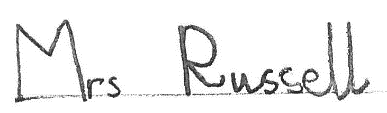 Mrs Russell